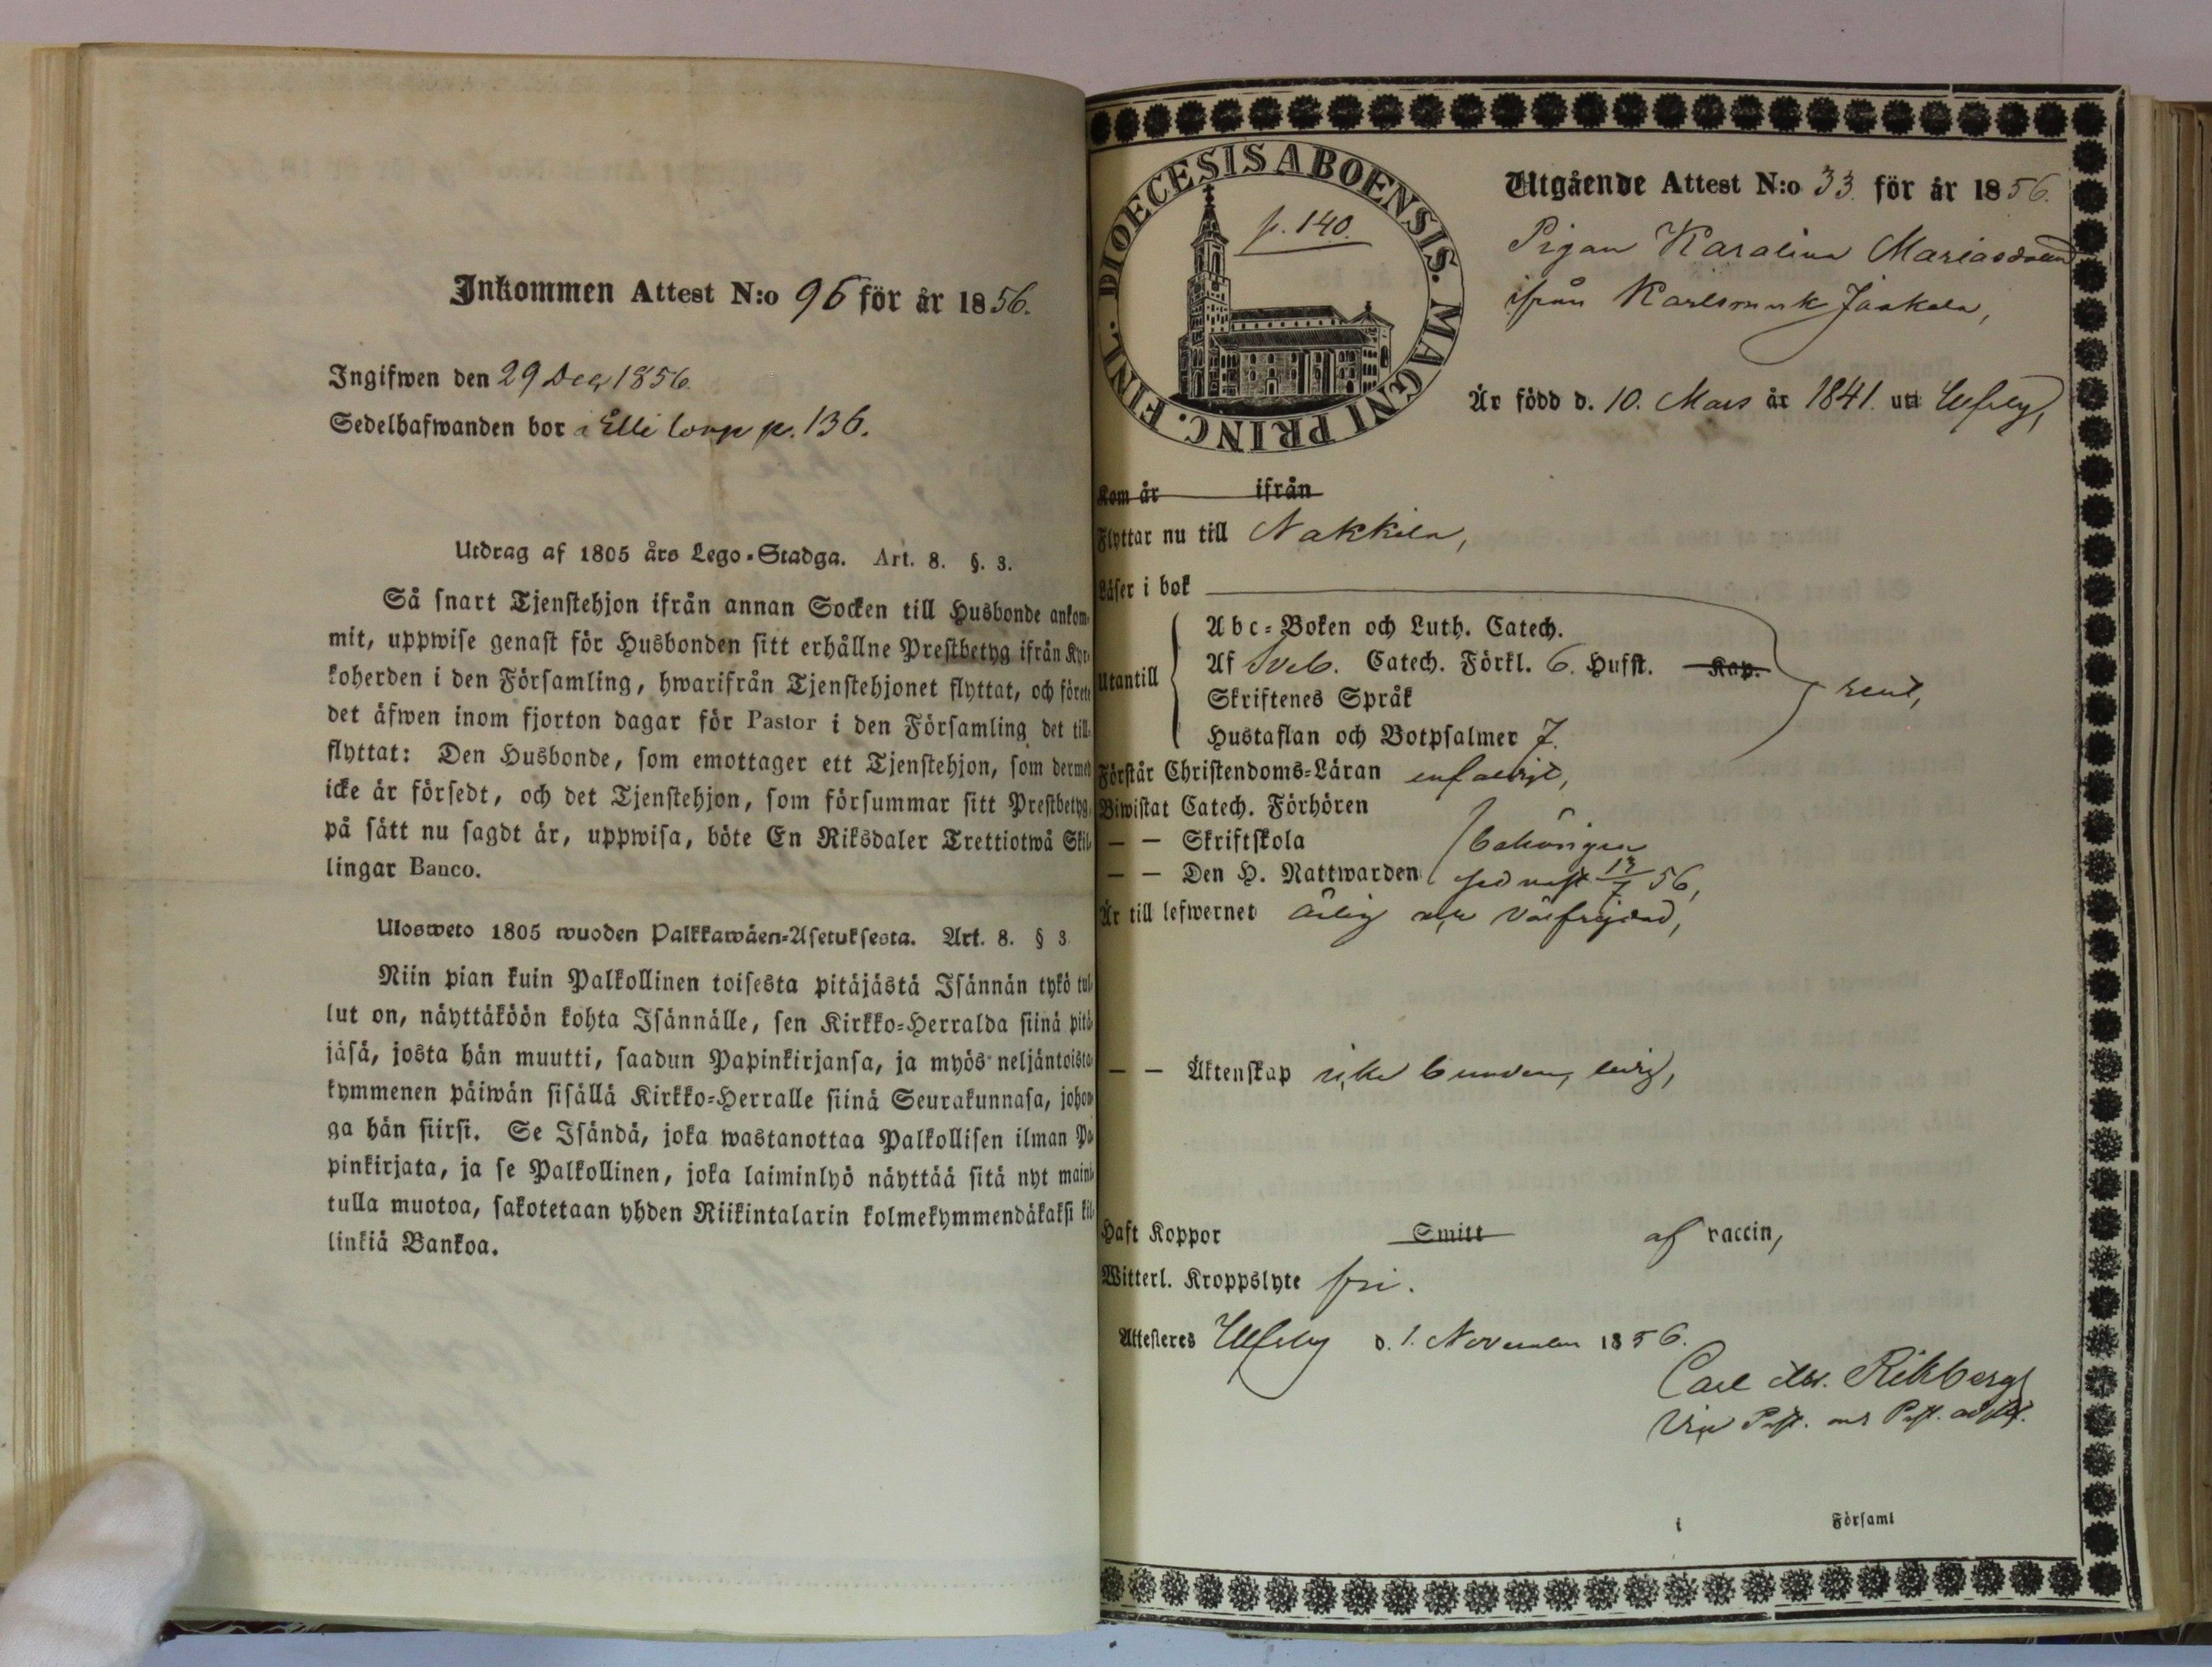 Inkommen Attest N:o 96 för år 1856.
Ingifwen den 29 Dec, 1856.
Sedelhafwanden bor i Elli torp p. 136.
Utdrag af 1805 års Lego-Stadga. Art. 8. §. 3.
Så snart Tjenstehjon ifrån annan Socken till Husbonde ankom-
mit, uppwise genast för Husbonden sitt erhållne Prestbetyg ifrån Kyr-
koherden i den Församling, hwarifrån Tjenstehjonet flyttat, och förete
det äfwen inom fjorton dagar för Pastor i den Församling det till-
flyttat: Den Husbonde, som emottager ett Tjenstehjon, som dermed
icke är försedt, och det Tjenstehjon, som försummar sitt Prestbetyg,
på sätt nu sagdt är, uppwisa, böte En Riksdaler Trettiotwå Skil-
lingar Banco.
Ulosweto 1805 wuoden Palkkawäen-Asetuksesta. Art. 8. § 3.
Niin pian kuin Palkollinen toisesta pitäjästä Isännän tykö tul-
lut on, näyttäköön kohta Isännälle, sen Kirkko-Herralda siinä pitä-
jäsä, josta hän muutti, saadun Papinkirjansa, ja myös neljäntoista-
kymmenen päiwän sisällä Kirkko-Herralle siinä Seurakunnasa, johon-
ga hän siirsi. Se Isändä, joka wastanottaa Palkollisen ilman Pa-
pinkirjata, ja se Palkollinen, joka laiminlyö näyttää sitä nyt maini-
tulla muotoa, sakotetaan yhden Riikintalarin kolmekymmendäkaksi kil-
linkiä Bankoa.
FINL. DIOECESIS ABOENSIS. MAGNI PRINC.
p. 140.
Utgående Attest N:o 33. för år 1856.
Pigan Karolina Mariasdotter
ifrån Karlsmark Jaakola,
Är född d. 10. Mars år 1841. uti Ulfsby,
Kom år ifrån
Flyttar nu till Nakkila,
Läser i bok
Utantill
Abc-Boken och Luth. Catech.
Af Sveb. Catech. Förkl. 6. Hufst. Kap.
Skriftenes Språk
Hustaflan och Botpsalmer 7.
rent,
Förstår Christendoms-Läran enfaldigt,
Biwistat Catech. Förhören
— — Skriftskola behörigen
— — Den H. Nattwarden sednast 13/7 56,
Är till lefwernet ärlig och välfrejdad,
— — Äktenskap icke bunden, ledig,
Haft Koppor Smitt af vaccin,
Witterl. Kroppslyte fri.
Attesteres Ulfsby d. 1. November 1856.
Carl Rikberg
Vice Past. Past.
i Församl